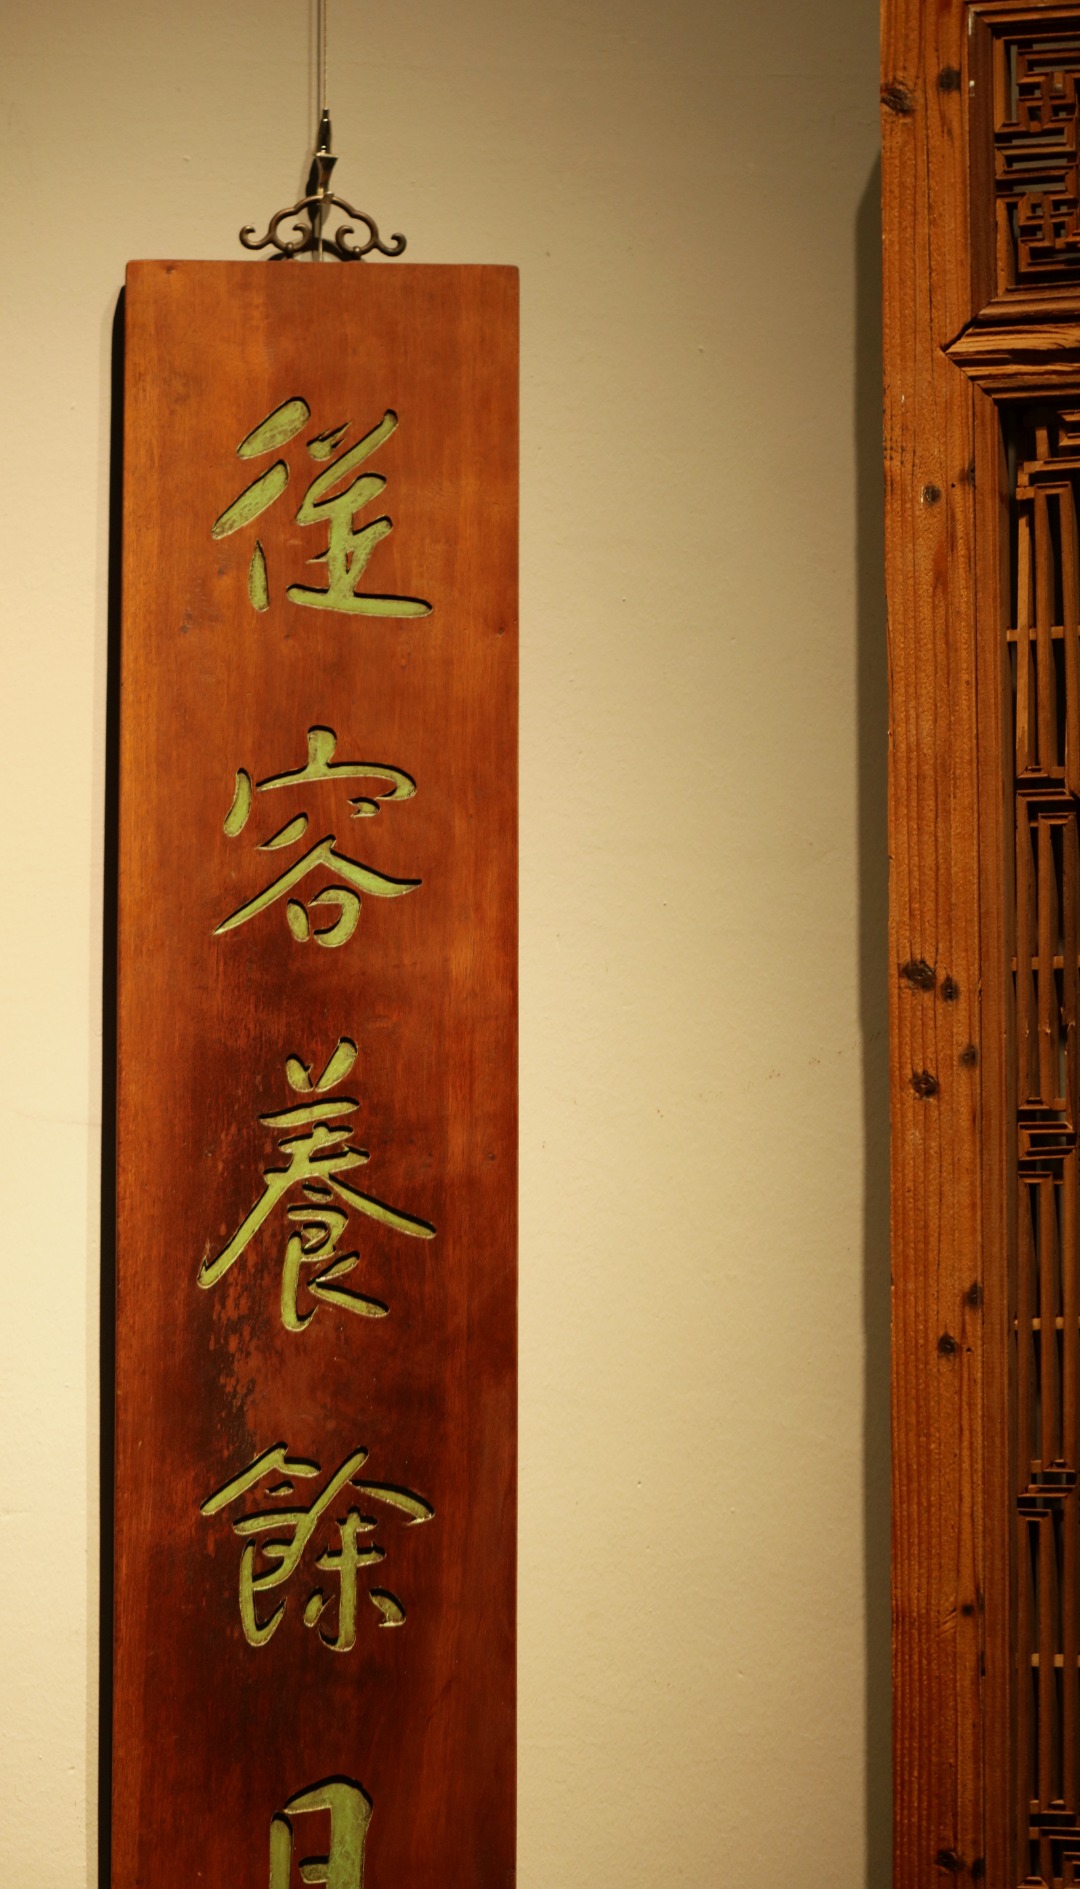 從容養餘日